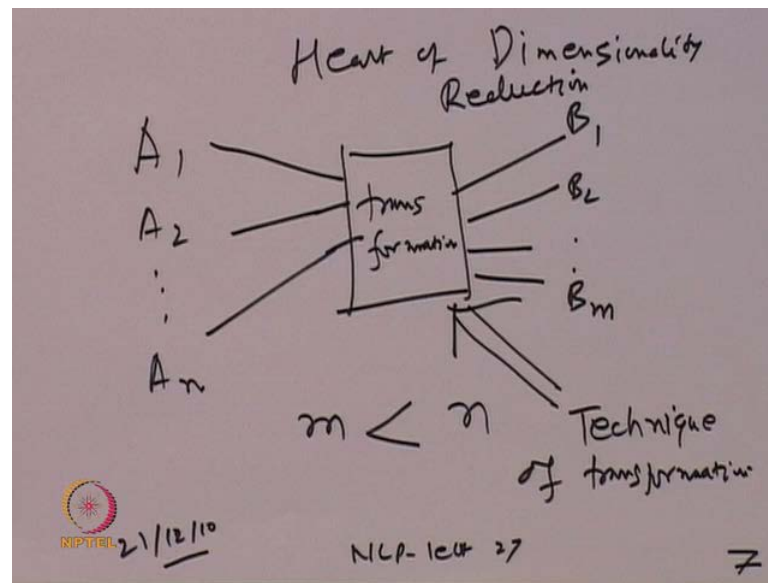 Heart of Dimensionality
Reduction
A1
A2
⋮
An
trans
formation
B1
B2
.
.
Bm
m < n
Technique
of transformation
NPTEL
21/12/10
NLP-lect 27
7